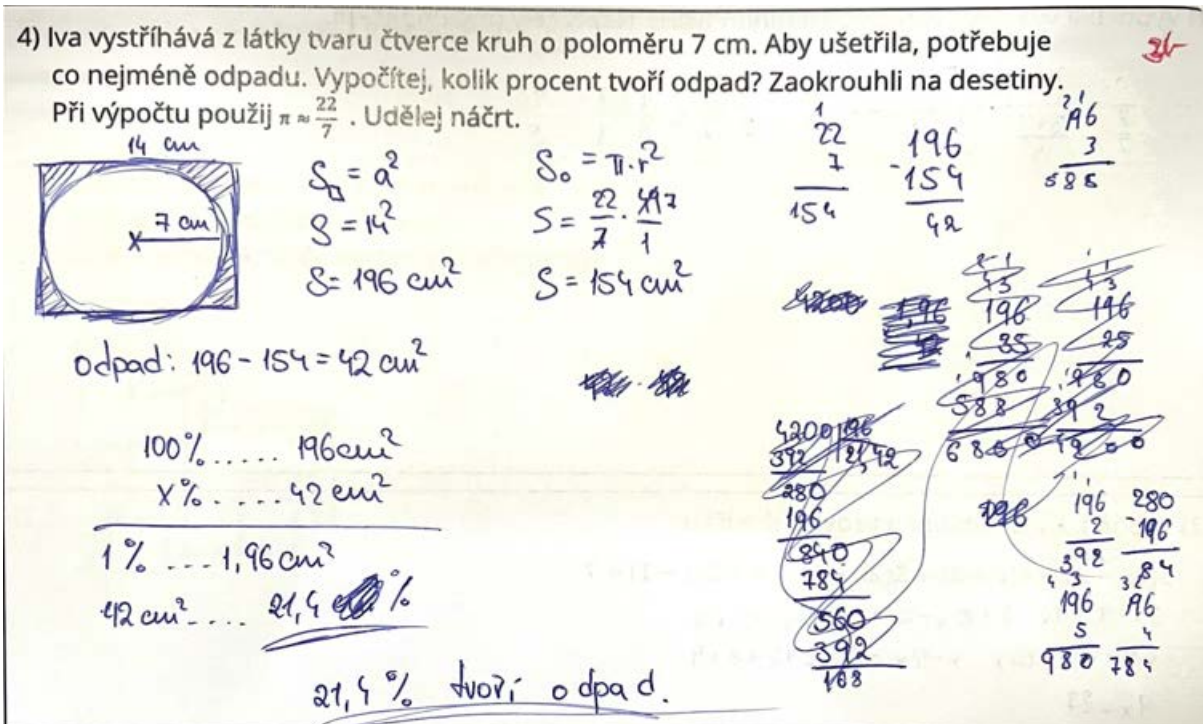 4) Iva vystříhává z látky tvaru čtverce kruh o poloměru 7 cm. Aby ušetřila, potřebuje
co nejméně odpadu. Vypočítej, kolik procent tvoří odpad? Zaokrouhli na desetiny.
Při výpočtu použij π ≈ 22/7 . Udělej náčrt.
2b
14 cm
7 cm
S□ = a²
S = 14²
S = 196 cm²
S○ = π·r²
S = 22/7 · 49 7/1
S = 154 cm²
1
22
7
154
196
-154
42
2 1
196
3
588
odpad: 196 - 154 = 42 cm²
100% ..... 196 cm²
x% ..... 42 cm²
1% ... 1,96 cm²
42 cm² .... 21,4 %
21,4 % tvoří odpad.
4200
1,96
196
35
980
588
6860
196
25
980
392
4200 196
392 21,42
280
196
840
784
560
392
168
196
196
2
392
280
196
84
4 3
196
5
980
3 2
196
4
784